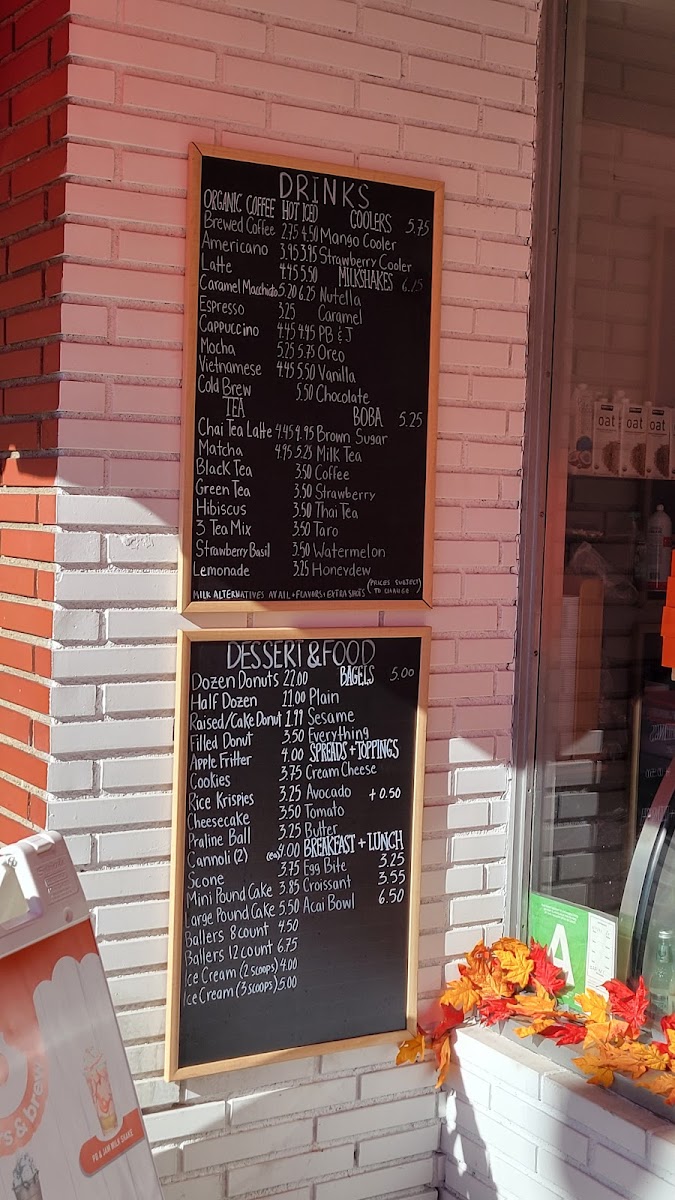 DRINKS
ORGANIC COFFEE HOT ICED
Brewed Coffee 2.75 4.50
Americano 3.95 3.95
Latte 4.45 5.50
Caramel Macchiato 5.20 6.25
Espresso 3.25
Cappuccino 4.45 4.45
Mocha 5.25 5.75
Vietnamese 4.45 5.50
Cold Brew 5.50
TEA
Chai Tea Latte 4.45 4.95
Matcha 4.95 5.25
Black Tea 3.50
Green Tea 3.50
Hibiscus 3.50
3 Tea Mix 3.50
Strawberry Basil 3.50
Lemonade 3.25
COOLERS 5.75
Mango Cooler
Strawberry Cooler
MILKSHAKES
Nutella
Caramel
PB & J
Oreo
Vanilla
Chocolate
BOBA 5.25
Brown Sugar
Milk Tea
Coffee
Strawberry
Thai Tea
Taro
Watermelon
Honeydew
MILK ALTERNATIVES AVAIL + FLAVORS + EXTRA SHOTS
(PRICES SUBJECT TO CHANGE)
DESSERT & FOOD
Dozen Donuts 22.00
Half Dozen 11.00
Raised/Cake Donut 1.99
Filled Donut 3.50
Apple Fritter 4.00
Cookies 3.75
Rice Krispies 3.25
Cheesecake 3.50
Praline Ball 3.25
Cannoli (2) (ea) 9.00
Scone 3.75
Mini Pound Cake 3.85
Large Pound Cake 5.50
Ballers 8 count 4.50
Ballers 12 count 6.75
Ice Cream (2 scoops) 4.00
Ice Cream (3 scoops) 5.00
BAGELS 5.00
Plain
Sesame
Everything
SPREADS + TOPPINGS
Cream Cheese
Avocado + 0.50
Tomato
Butter
BREAKFAST + LUNCH
Egg Bite 3.25
Croissant 3.55
Acai Bowl 6.50
oat
oat
oat
A
s & brew
PB & JAM MILK SHAKE